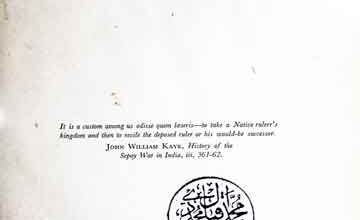 It is a custom among us odisse quem læseris—to take a Native ruler's
kingdom and then to revile the deposed ruler or his would-be successor.
JOHN WILLIAM KAYE, History of the
Sepoy War in India, iii, 361-62.